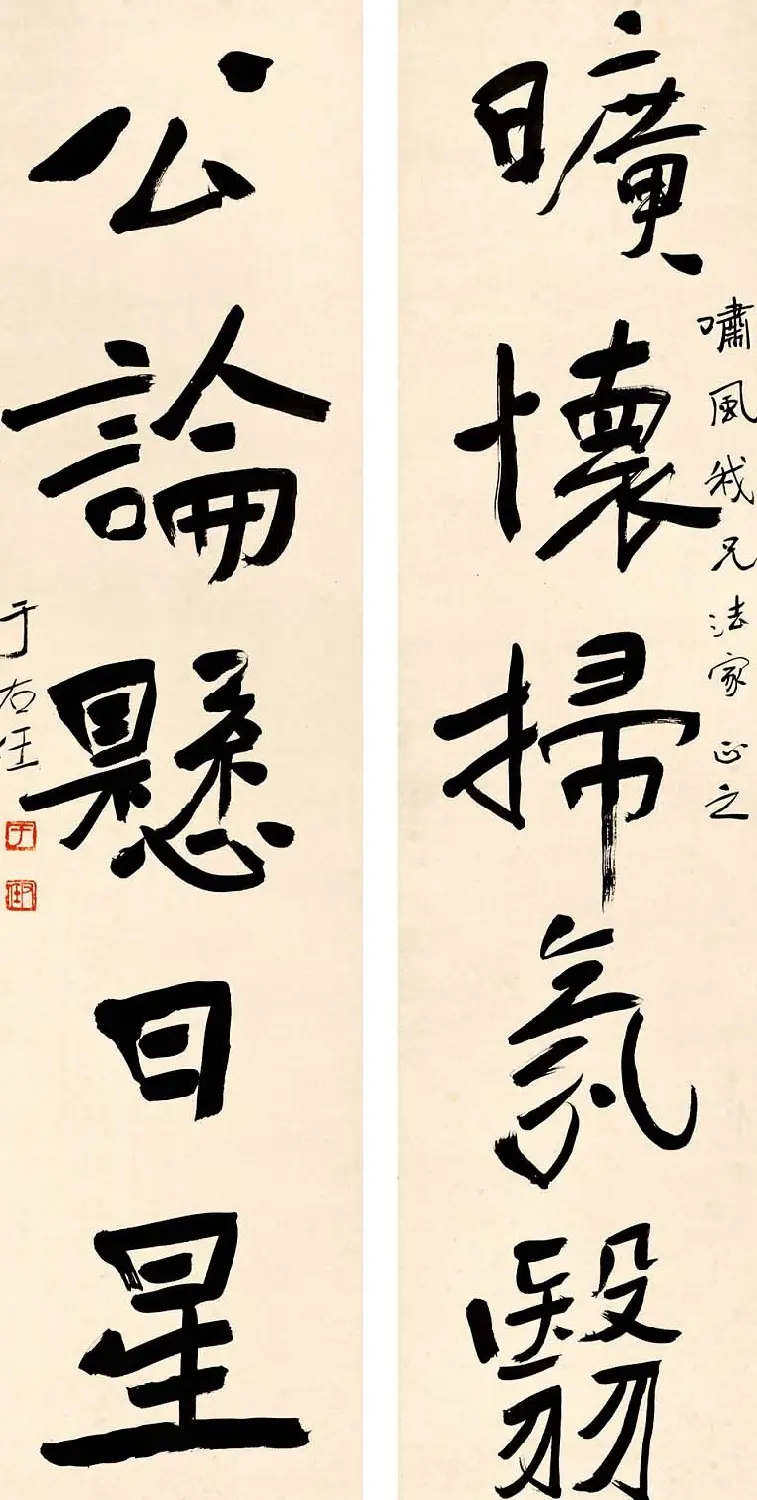 曠懷掃氛翳
嘯風我兄法家正之
公論懸日星
于右任